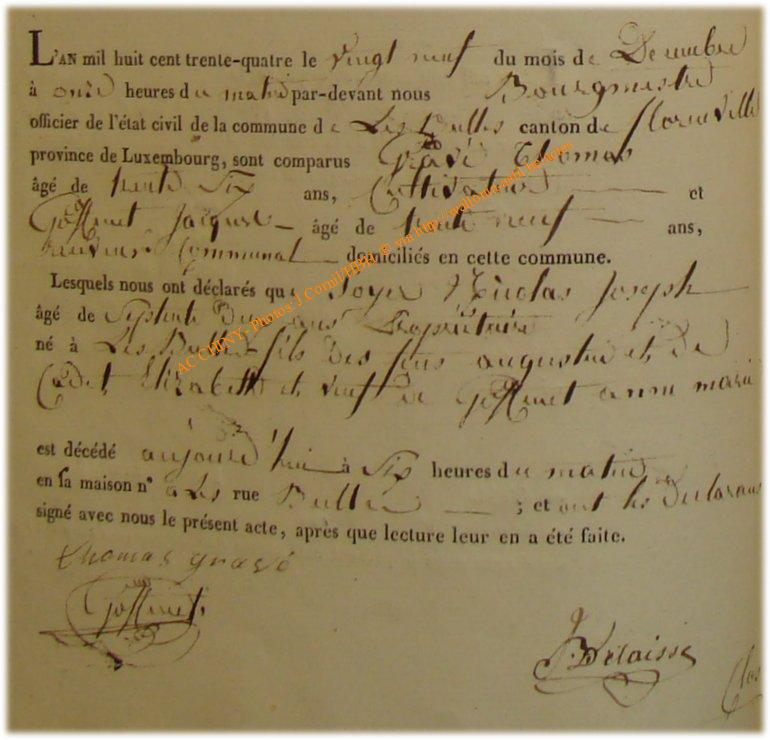 L'AN mil huit cent trente-quatre le vingt neuf du mois de Decembre
à onze heures du matin par-devant nous Bourgmestre
officier de l'état civil de la commune de Les Bulles canton de florenville
province de Luxembourg, sont comparus Gravé Thomas
âgé de trente Six ans, Cultivateur et
Goffinet Jacques âgé de trente neuf ans,
Communal domiciliés en cette commune.
Lesquels nous ont déclarés que Soyer Nicolas Joseph
âgé de ans Propriétaire
né à Les Bulles fils des feus augustin et de
Elizabeth et veuf de Goffinet anne marie
est décédé aujourd'hui à Six heures du matin
en sa maison n° a Les rue Bulles ; et ont les Declarans
signé avec nous le présent acte, après que lecture leur en a été faite.
thomas gravé
Goffinet
AC CHINY, Photos J Cornil/HBH © via http://